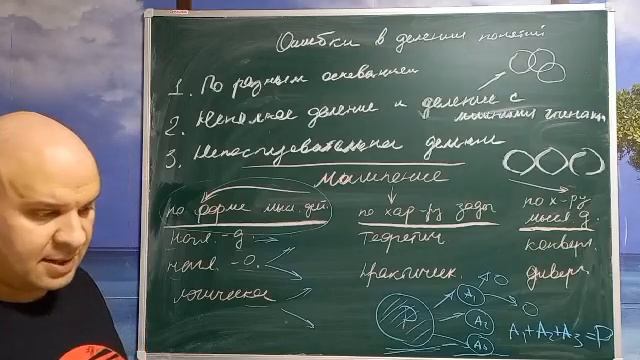 Ошибки в делении понятий
1. По разным основаниям
2. Неполное деление и деление с
лишними членами
3. Непоследовательное деление
мышление
по форме мыш. дей.
по хар-ру задач
по х-ру
мысл д.
нагл. -д.
теоретич
конверг.
нагл. -о.
практическ.
диверг.
логическое
P
A1
A2
A3
A1+A2+A3=P